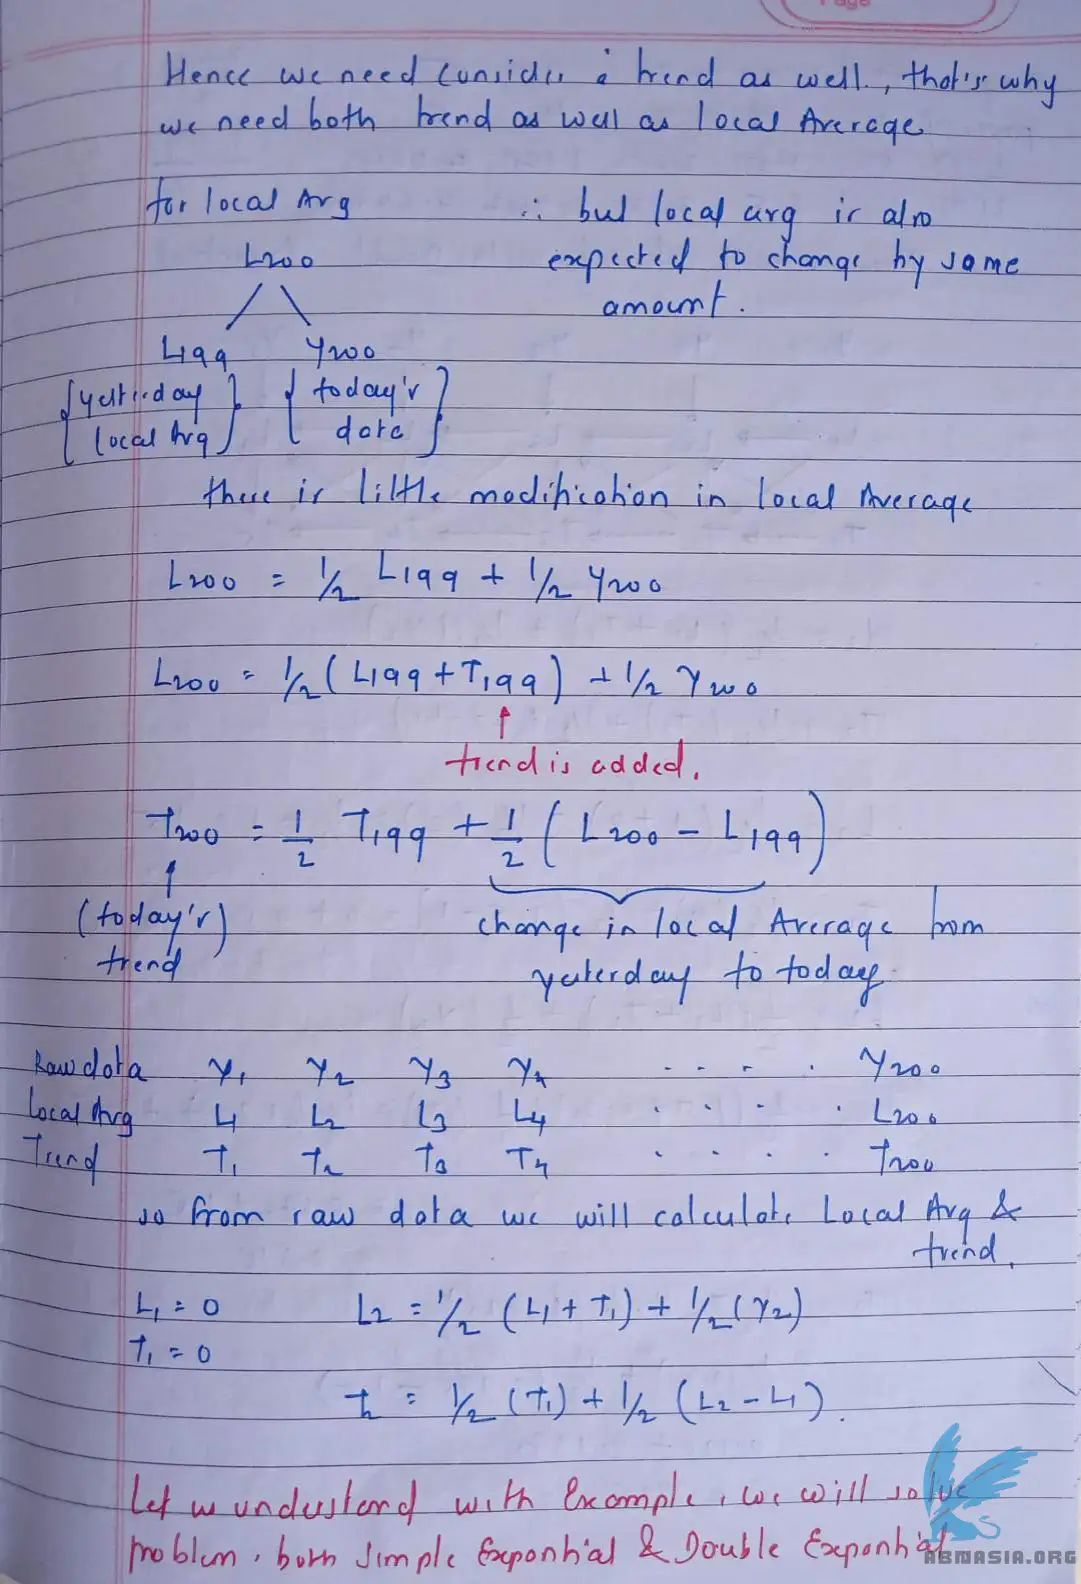 Page
Hence we need consider a trend as well, that's why
we need both trend as well as local Average
for local Avg
∴ but local avg is also
expected to change by same
amount.
L200
L199 Y200
{yesterday local Avg} {today's data}
there is little modification in local Average
L200 = 1/2 L199 + 1/2 Y200
L200 = 1/2 (L199 + T199) + 1/2 Y200
trend is added.
T200 = 1/2 T199 + 1/2 (L200 - L199)
(today's)
trend
change in local Average from
yesterday to today
Raw data Y1 Y2 Y3 Y4 . . . . Y200
local Avg L1 L2 L3 L4 . . . . L200
Trend T1 T2 T3 T4 . . . . T200
so from raw data we will calculate Local Avg &
trend.
L1 = 0 L2 = 1/2 (L1 + T1) + 1/2 (Y2)
T1 = 0
T2 = 1/2 (T1) + 1/2 (L2 - L1).
Let us understand with Example, we will solve
problem, both Simple Exponhial & Double Exponhial
ABMASIA.ORG